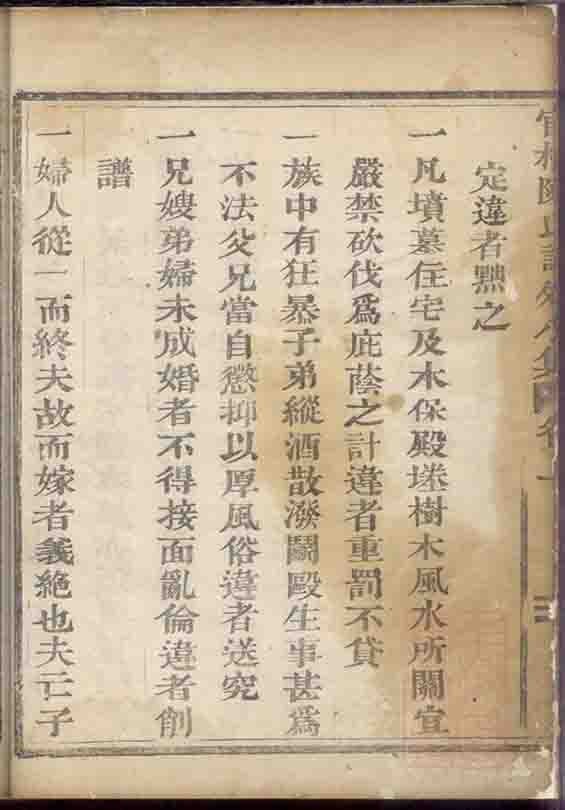 定違者黜之
一凡墳墓住宅及水保殿垂樹木風水所關宜
嚴禁砍伐爲庇蔭之計違者重罰不貸
一族中有狂暴子弟縱酒散潑鬭毆生事甚爲
不法父兄當自懲抑以厚風俗違者送究
一兄嫂弟婦未成婚者不得接面亂倫違者削
譜
一婦人從一而終夫故而嫁者義絶也夫亡子